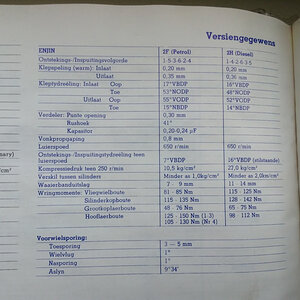 Versiengegewens
ENJIN 2F (Petrol) 2H (Diesel)
Ontstekings-/Inspuitingsvolgorde 1-5-3-6-2-4 1-4-2-6-3-5
Klepspeling (warm): Inlaat 0,20 mm 0,20 mm
Uitlaat 0,35 mm 0,36 mm
Kleptydreëling: Inlaat Oop 17°VBDP 16°VBDP
Toe 53°NODP 48°NODP
Uitlaat Oop 55°VODP 52°VODP
Toe 15°NBDP 14°NBDP
Verdeler: Punte opening 0,30 mm
Rushoek 41°
Kapasitor 0,20-0,24 µF
Vonkpropgaping 0,8 mm
Luierspoed 650 r/min 650 r/min
Ontstekings-/Inspuitingstydreeling teen
luierspoed 7°VBDP 16°VBDP (stilstaande)
Kompressiedruk teen 250 r/min 10,5 kg/cm² 27,0 kg/cm²
Verskil tussen silinders Minder as 1,0kg/cm² Minder as 2,0kg/cm²
Waaierbanduitslag 7 — 9 mm 11 — 14 mm
Wringmomente: Vliegwielboute 61 — 85 Nm 115 - 125 Nm
Silinderkopboute 115 - 135 Nm 128 - 142 Nm
Grootkoplaerboute 48 - 76 Nm 65 - 75 Nm
Hooflaerboute 125 - 150 Nm (1-3) 98 - 112 Nm
105 - 130 Nm (Nr 4)
Voorwielsporing:
Toesporing 3 — 5 mm
Wielvlug 1°
Nasporing 1°
Aslyn 9°34'
mary)
/cm²